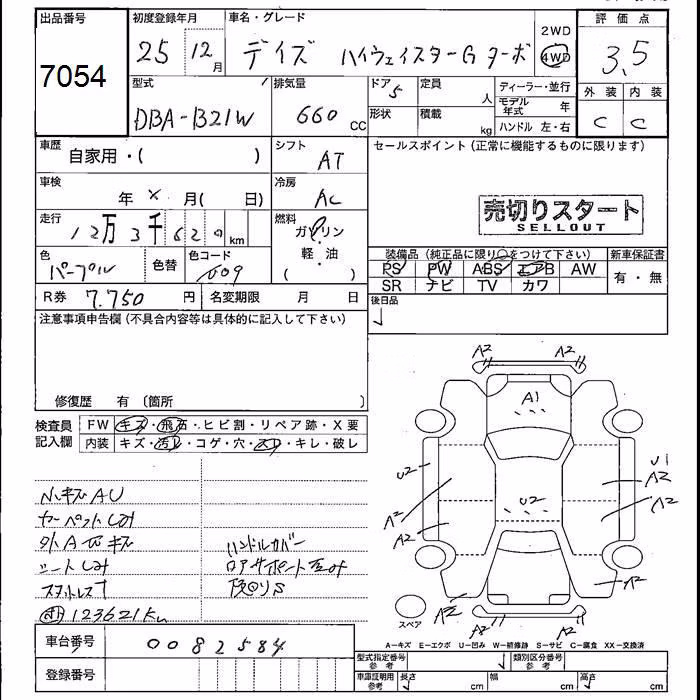 出品番号
7054
初度登録年月
25 12月
車名・グレード
デイズ ハイウェイスターG ターボ
2WD
4WD
評価点
3.5
外装 内装
C C
型式
DBA-B21W
排気量
660 CC
ドア 5
形状
定員 人
積載 kg
ディーラー・並行
モデル年式 年
ハンドル 左・右
車歴 自家用・( )
シフト AT
セールスポイント (正常に機能するものに限ります)
車検 年 × 月( 日)
冷房 AC
売切りスタート
SELLOUT
走行 12万3千620 km
燃料 ガソリン・軽・油
装備品 (純正品に限り○をつけて下さい)
新車保証書
PS PW ABS エアB AW
SR ナビ TV カワ
有・無
色 パープル
色替
色コード
R券 7.750 円
名変期限 月 日
後日品
注意事項申告欄 (不具合内容等は具体的に記入して下さい)
修復歴 有 〔箇所 〕
検査員記入欄
FW キズ・飛石・ヒビ割・リペア跡・X要
内装 キズ・汚レ・コゲ・穴・スレ・キレ・破レ
小キズ AU
カーペットしみ
外A下キズ
シートしみ
ハンドルカバー
123621Km
A2 A2
A1
U2
U2
A2
A2
U1
A2
A2
A2
A2
A2 A2
スペア
A-キズ E-エクボ U-凹み W-補修跡 S-サビ C-腐食 XX-交換済
車台番号 0082584
登録番号
型式指定番号 参考
類別区分番号 参考
車庫証明用 参考
長さ cm
幅 cm
高さ cm